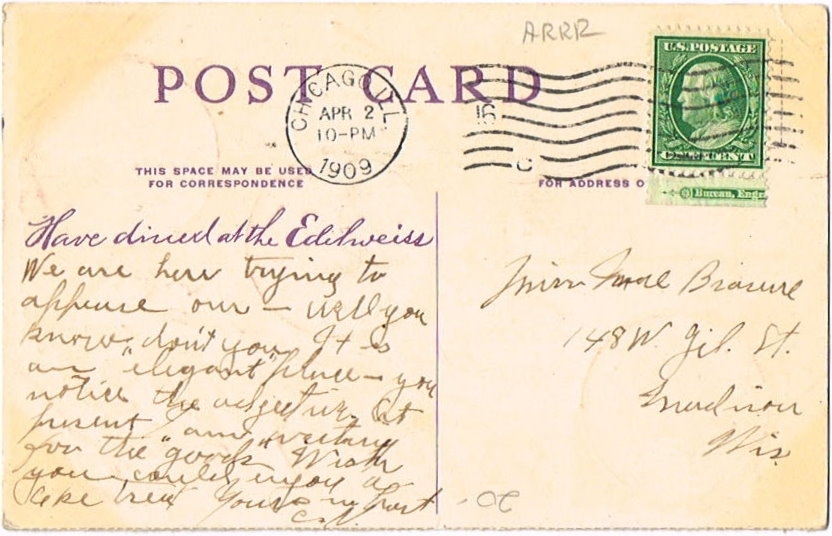 ARRR
U.S. POSTAGE
POST CARD
CHICAGO ILL
APR 2
10-PM
1909
15
C
ONE CENT
THIS SPACE MAY BE USED
FOR CORRESPONDENCE
FOR ADDRESS O
Bureau, Engr
Have dined at the Edelweiss
We are here trying to
appease our — well you
know, don't you. It is
an "elegant" place — you
notice the adjective. At
present I am waiting
for the "goods" Wish
you could enjoy a
Yours in part
Miss Brasure
148 W. Gil. St.
Madison
Wis.